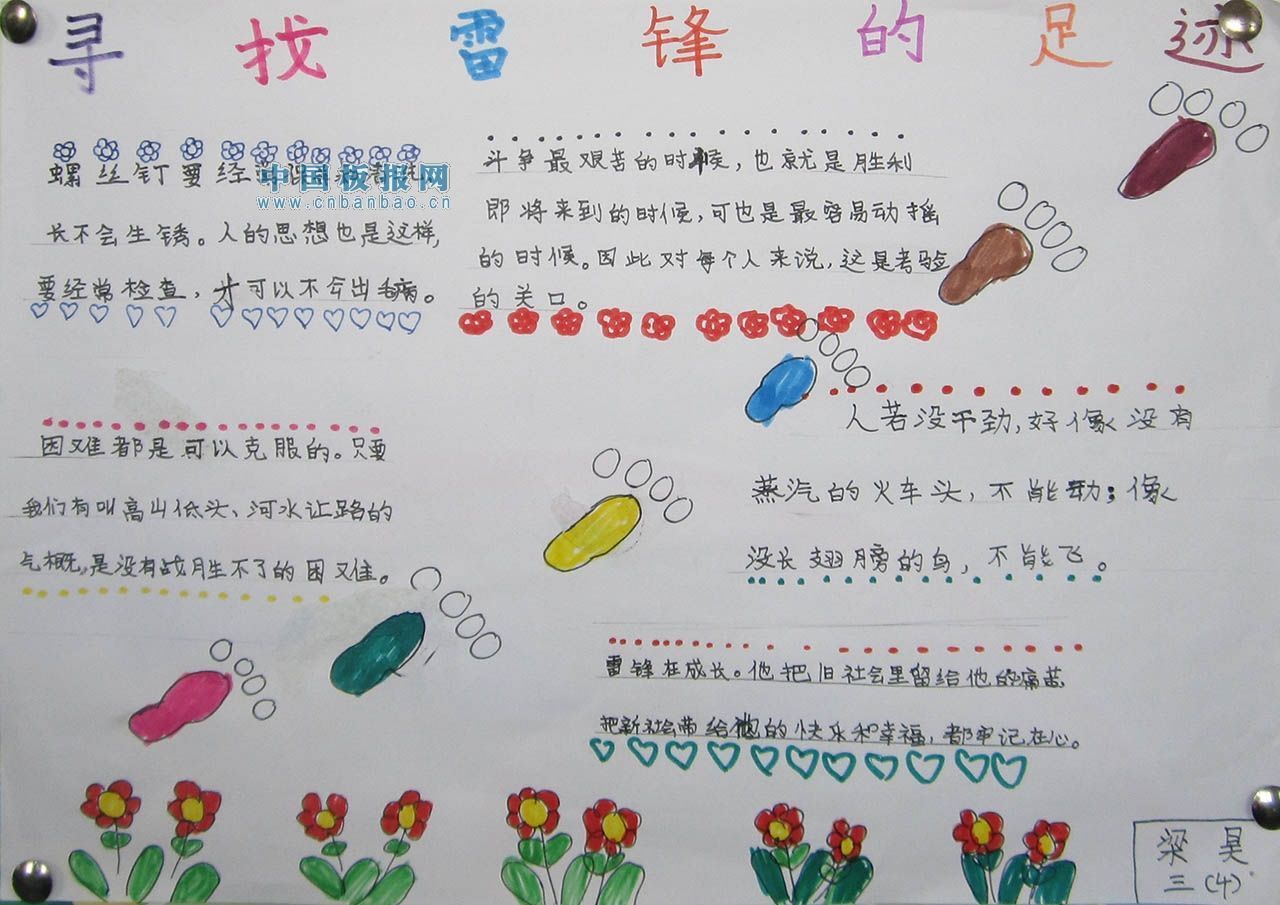 寻找雷锋的足迹
螺丝钉要经
中国板报网
www.cnbanbao.cn
长不会生锈。人的思想也是这样,
要经常检查，才可以不会出毛病。
斗争最艰苦的时候，也就是胜利
即将来到的时候,可也是最容易动摇
的时候。因此对每个人来说,这是考验
的关口。
困难都是可以克服的。只要
我们有叫高山低头、河水让路的
气概,是没有战胜不了的困难。
人若没干劲,好像没有
蒸汽的火车头，不能动；像
没长翅膀的鸟，不能飞。
雷锋在成长。他把旧社会里留给他的痛苦
把新社会带给他的快乐和幸福，都牢记在心。
梁昊
三(4)